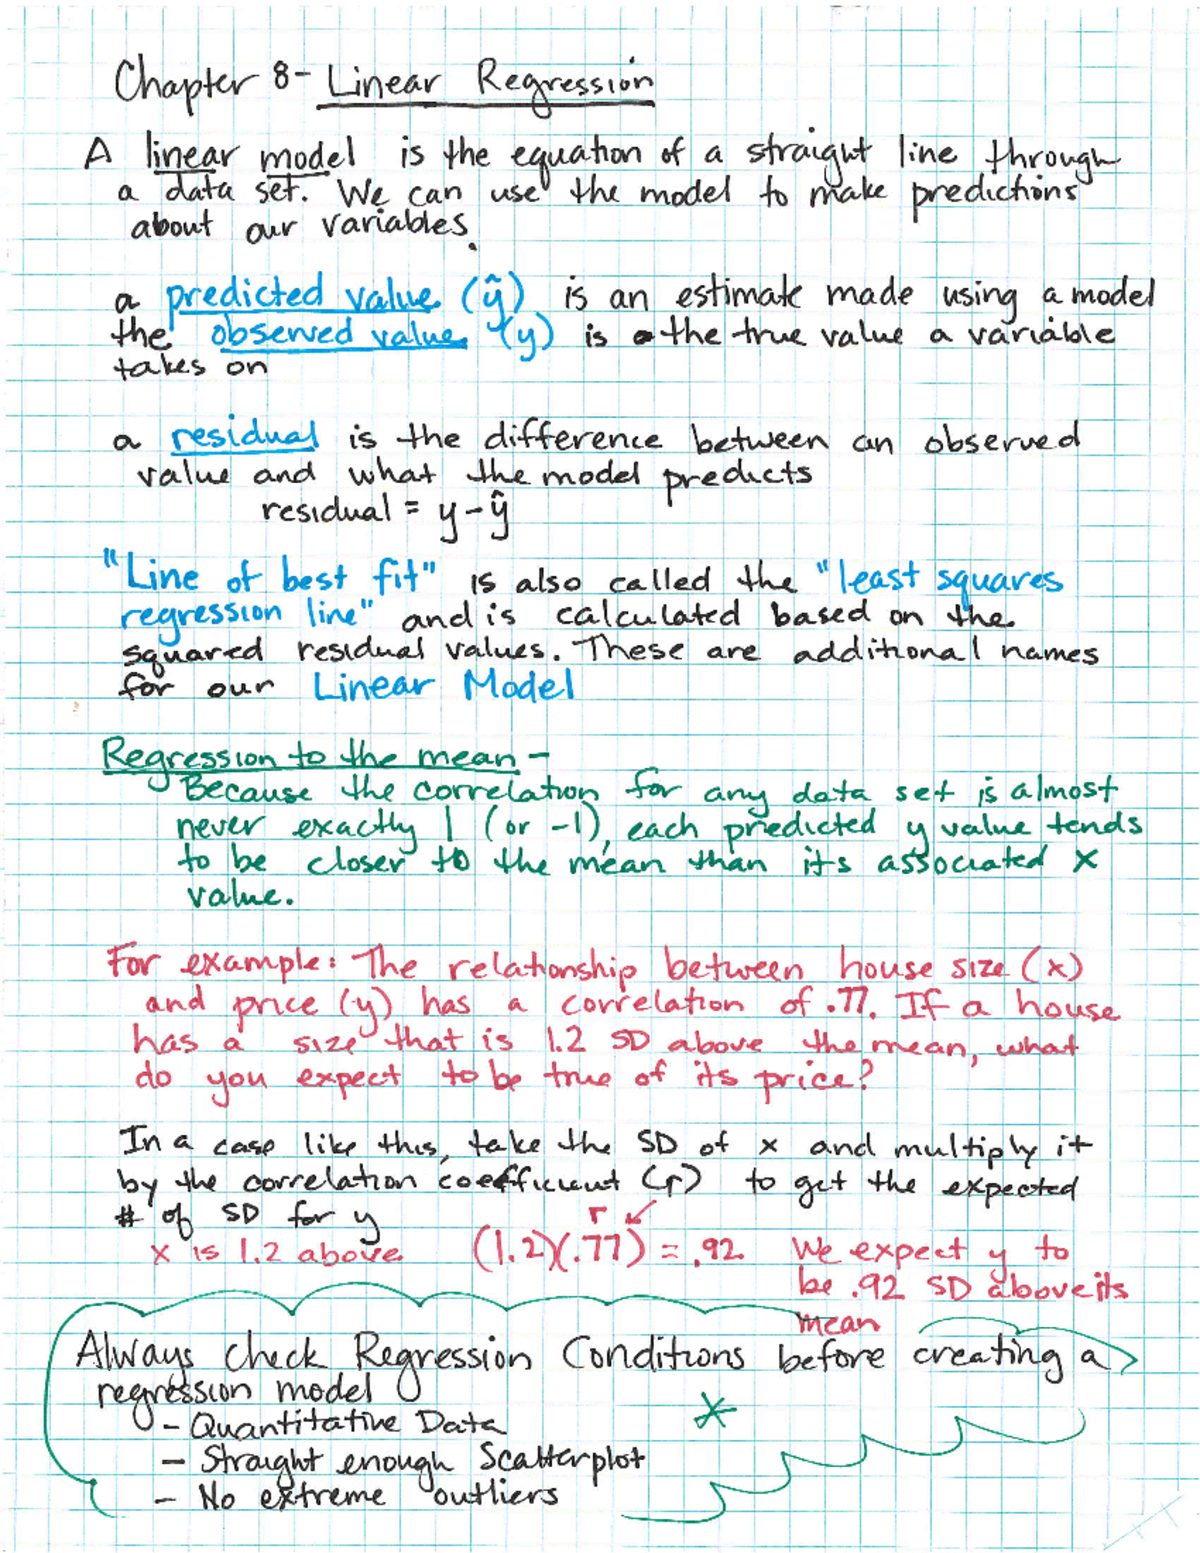 Chapter 8- Linear Regression
A linear model is the equation of a straight line through
a data set. We can use the model to make predictions
about our variables.
a predicted value (ŷ) is an estimate made using a model
the observed value (y) is the true value a variable
takes on
a residual is the difference between an observed
value and what the model predicts
residual = y-ŷ
"Line of best fit" is also called the "least squares
regression line" and is calculated based on the
squared residual values. These are additional names
for our Linear Model
Regression to the mean -
Because the correlation for any data set is almost
never exactly 1 (or -1), each predicted y value tends
to be closer to the mean than its associated x
value.
For example: The relationship between house size (x)
and price (y) has a correlation of .77. If a house
has a size that is 1.2 SD above the mean, what
do you expect to be true of its price?
In a case like this, take the SD of x and multiply it
by the correlation coefficient (r) to get the expected
# of SD for y
r
x is 1.2 above (1.2)(.77) = .92 We expect y to
be .92 SD above its
mean
Always check Regression Conditions before creating a
regression model
- Quantitative Data
- Straight enough Scatterplot
- No extreme outliers